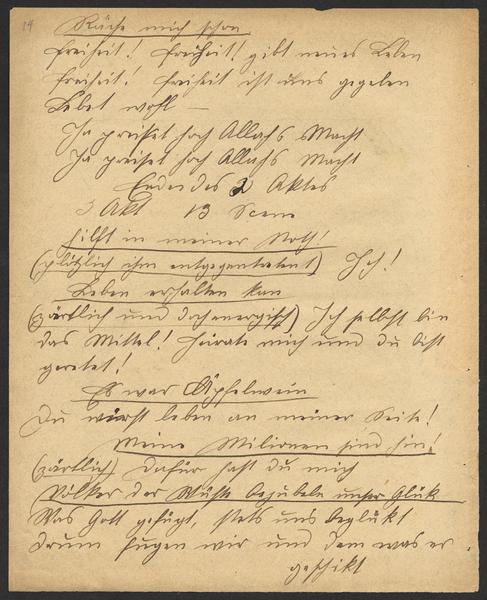 14
Räche mich schon
Freiheit! Freiheit! gibt neues Leben
Freiheit! Freiheit ist uns gegeben
Lebet wohl —
Ja preiset hoch Allahs Macht
Ja preiset hoch Allahs Macht
Ende des 2 Aktes
3 Akt 13 Scene
hilft in meiner Noth!
(plötzlich ihm entgegentretent) Ich!
Leben erhalten kan
(zärtlich und doch energisch) Ich selbst bin
das Mittel! Heirate mich und du bist
geretet!
Es war Äpfelwein
Du wirst leben an meiner Seite!
Meine Milionen sind hin!
(zärtlich) Dafür hast du mich
Völker der Wüste bejubeln unser Glük
Was Gott gefügt, stets uns beglükt
drum fugen wir uns dem was er
geschikt